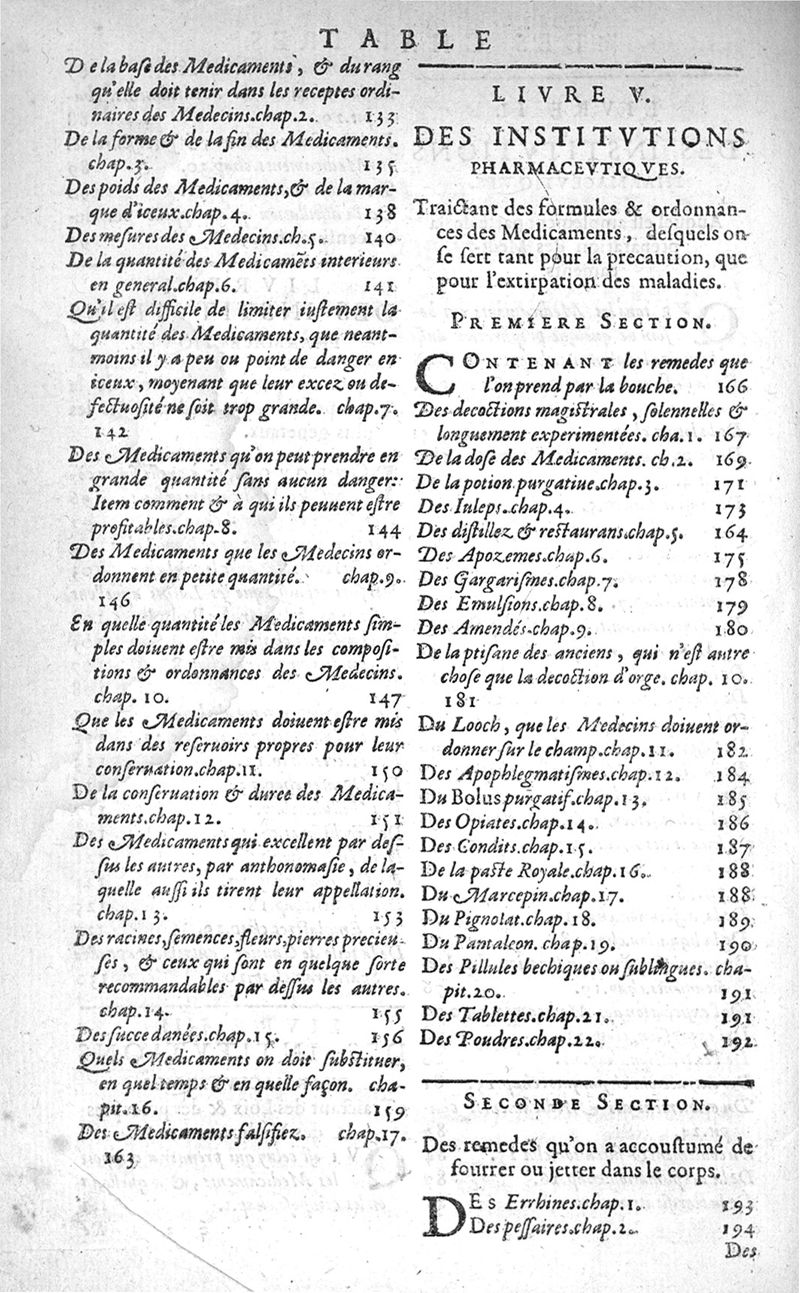 TABLE
De la base des Medicaments, & du rang
qu'elle doit tenir dans les receptes ordi-
naires des Medecins.chap.2. 133
De la forme & de la fin des Medicaments.
chap.3. 135
Des poids des Medicaments,& de la mar-
que d'iceux.chap.4. 138
Des mesures des Medecins.ch.5. 140
De la quantité des Medicamẽts interieurs
en general.chap.6. 141
Qu'il est difficile de limiter iustement la
quantité des Medicaments, que neant-
moins il y a peu ou point de danger en
iceux, moyenant que leur excez ou de-
fectuosité ne soit trop grande. chap.7.
142
Des Medicaments qu'on peut prendre en
grande quantité sans aucun danger:
Item comment & à qui ils peuuent estre
profitables.chap.8. 144
Des Medicaments que les Medecins or-
donnent en petite quantité. chap.9.
146
En quelle quantité les Medicaments sim-
ples doiuent estre mis dans les composi-
tions & ordonnances des Medecins.
chap. 10. 147
Que les Medicaments doiuent estre mis
dans des reseruoirs propres pour leur
conseruation.chap.11. 150
De la conseruation & duree des Medica-
ments.chap.12. 151
Des Medicaments qui excellent par des-
sus les autres, par anthonomasie, de la-
quelle aussi ils tirent leur appellation.
chap.13. 153
Des racines,semences,fleurs,pierres precieu-
ses, & ceux qui sont en quelque sorte
recommandables par dessus les autres.
chap.14. 155
Des succedanées.chap.15. 156
Quels Medicaments on doit substituer,
en quel temps & en quelle façon. cha-
pit.16. 159
Des Medicaments falsifiez. chap.17.
163
LIVRE V.
DES INSTITVTIONS
PHARMACEVTIQVES.
Traictant des formules & ordonnan-
ces des Medicaments, desquels on
se sert tant pour la precaution, que
pour l'extirpation des maladies.
PREMIERE SECTION.
CONTENANT les remedes que
l'on prend par la bouche. 166
Des decoctions magistrales, solennelles &
longuement experimentées. cha.1. 167
De la dose des Medicaments. ch.2. 169
De la potion purgatiue.chap.3. 171
Des Iuleps.chap.4. 173
Des distillez & restaurans.chap.5. 164
Des Apozemes.chap.6. 175
Des Gargarismes.chap.7. 178
Des Emulsions.chap.8. 179
Des Amendés.chap.9. 180
De la ptisane des anciens, qui n'est autre
chose que la decoction d'orge. chap. 10.
181
Du Looch, que les Medecins doiuent or-
donner sur le champ.chap.11. 182
Des Apophlegmatismes.chap.12. 184
Du Bolus purgatif.chap.13. 185
Des Opiates.chap.14. 186
Des Condits.chap.15. 187
De la paste Royale.chap.16. 188
Du Marcepin.chap.17. 188
Du Pignolat.chap.18. 189
Du Pantaleon. chap.19. 190
Des Pillules bechiques ou sublingues. cha-
pit.20. 191
Des Tablettes.chap.21. 191
Des Poudres.chap.22. 192
SECONDE SECTION.
Des remedes qu'on a accoustumé de
fourrer ou jetter dans le corps.
DEs Errhines.chap.1. 193
Des pessaires.chap.2. 194
Des